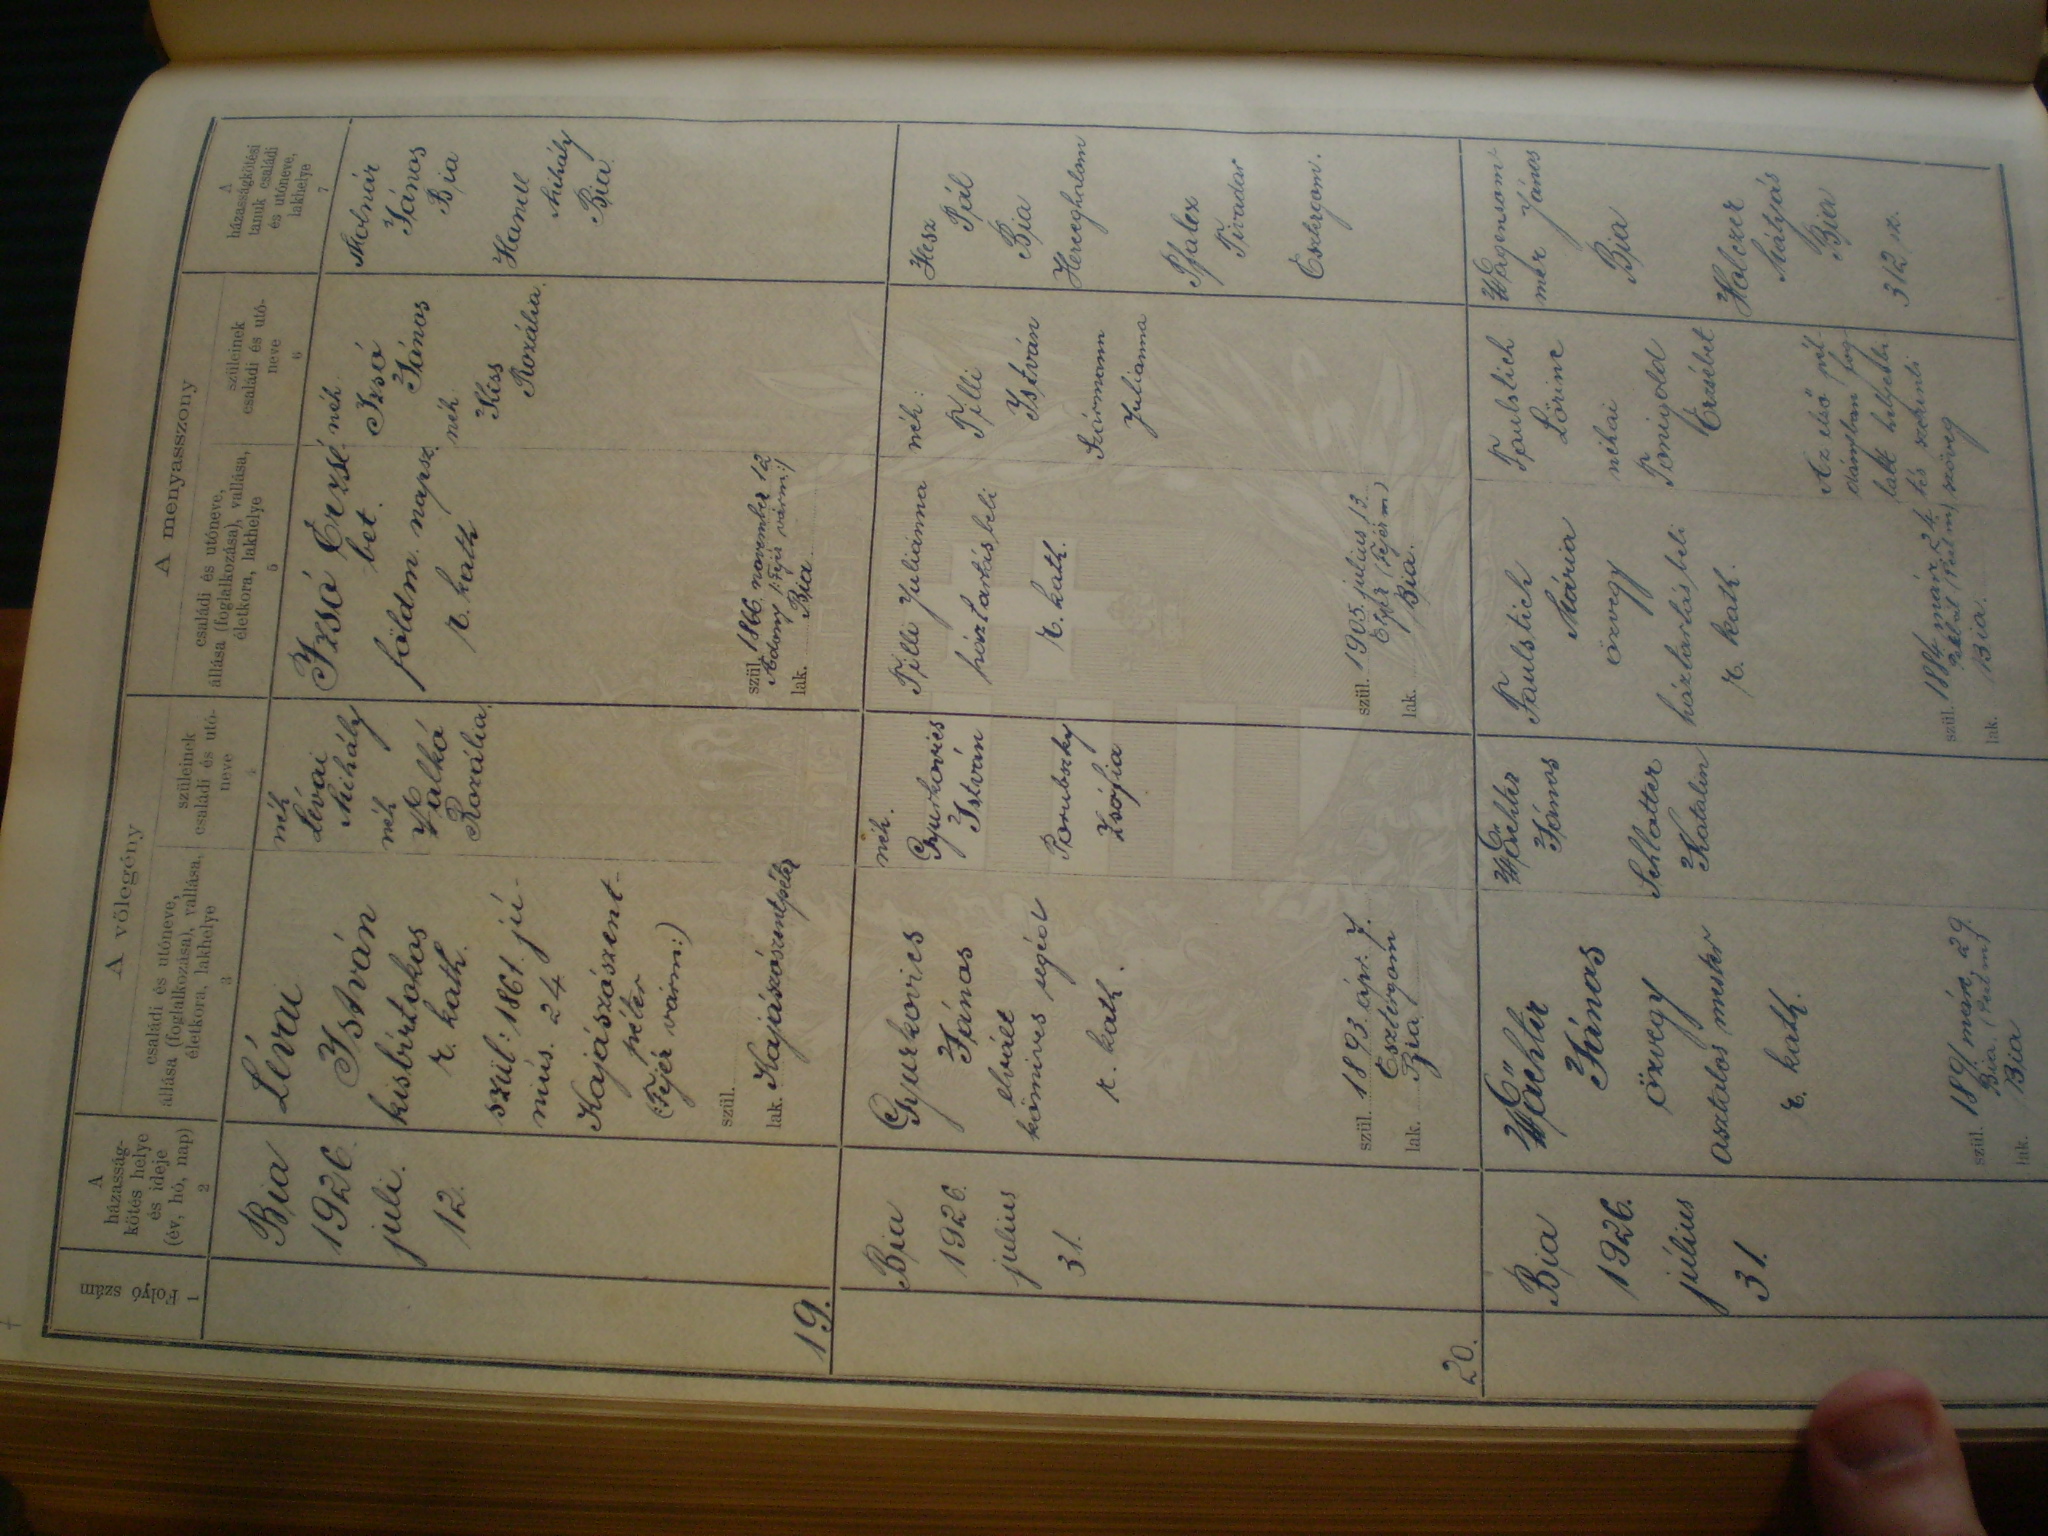 1
Folyó szám
A
házasság-
kötés helye
és ideje
(év, hó, nap)
2
A vőlegény
családi és utóneve,
állása (foglalkozása), vallása,
életkora, lakhelye
3
szüleinek
családi és utó-
neve
4
A menyasszony
családi és utóneve,
állása (foglalkozása), vallása,
életkora, lakhelye
5
szüleinek
családi és utó-
neve
6
A
házasságkötési
tanuk családi
és utóneve,
lakhelye
7
19.
Bia
1926.
juli.
12.
Lévai
István
kisbirtokos
r. kath.
szül: 1861. jú-
nius. 24
Kajászószent-
péter
(Fejér várm:)
szül.
lak. Kajászószentpéter
néh
Lévai
Mihály
néh
Rozália
Izsó Erzsé
bet.
földm. napsz.
r. kath
szül. 1866 november 12
Adony (:Fejér várm:)
lak. Bia
néh.
Izsó
János
néh.
Kiss
Rozália.
Molnár
János
Bia
Mihály
Bia
20.
Bia
1926.
julius
31.
Gyurkovics
János
elvált
kőmives segéd
r. kath.
szül. 1893. ápr. 7.
Esztergom
lak. Bia
néh.
Gyurkovics
István
Porubszky
Zsófia
Tilli Juliánna
háztartásbeli
r. kath.
szül. 1905. julius 13.
(Fejér m)
lak. Bia.
néh:
Tilli
István
Julianna
Hesz
Pál
Bia
Herceghalom
Tivadar
Esztergom.
Bia
1926.
július
31.
Wächter
János
özvegy
asztalos mester
r. kath.
szül. 1891 márc 29.
Bia. (Pest m)
lak. Bia
Wächter
János
Schlotter
Katalin
Faulstich
Mária
özvegy
háztartásbeli
r. kath.
szül. 1884 márc 24.
lak. Bia.
Faulstich
Lőrinc
néhai
Erzsébet
Az első pél-
dányban fog-
lalt helyesbi-
tés szerinti
szöveg
Wagensom-
mer János
Bia
Holczer
Mátyás
Bia
312 sz.